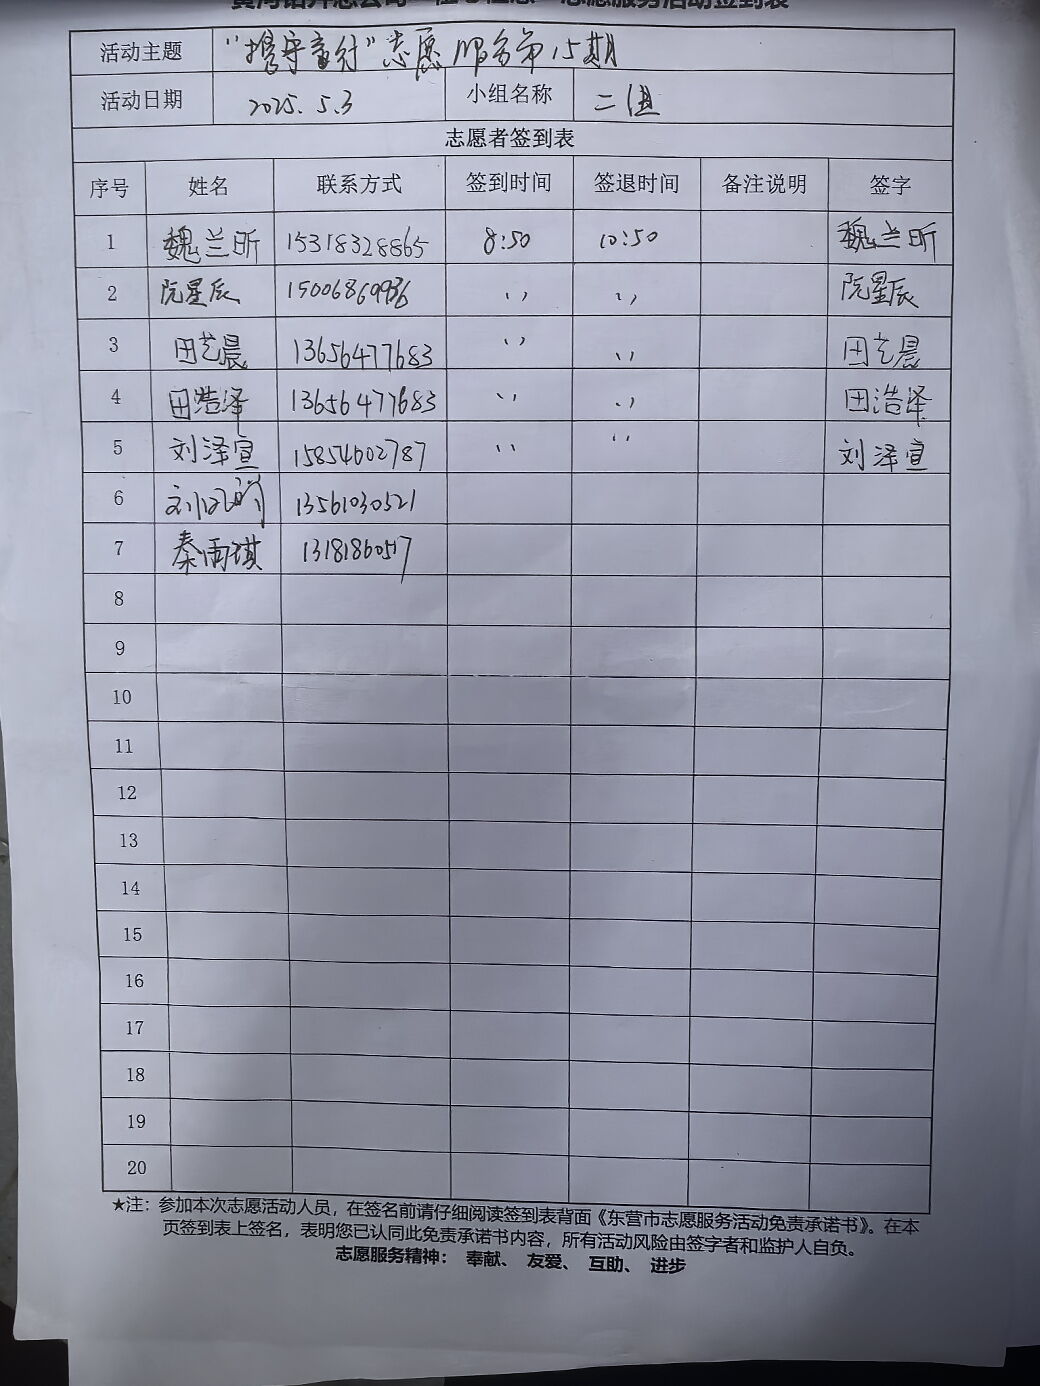 活动主题 “携守童行”志愿服务第15期
活动日期 2025.5.3 小组名称 二组
志愿者签到表
序号 姓名 联系方式 签到时间 签退时间 备注说明 签字
1 魏兰昕 15318328865 8:50 10:50 魏兰昕
2 阮星辰 15006869936 〃 〃 阮星辰
3 田艺晨 13656477683 〃 〃 田艺晨
4 田浩泽 13656477683 〃 〃 田浩泽
5 刘泽宣 15854602787 〃 〃 刘泽宣
6 13561030521
7 秦雨琪
8
9
10
11
12
13
14
15
16
17
18
19
20
★注：参加本次志愿活动人员，在签名前请仔细阅读签到表背面《东营市志愿服务活动免责承诺书》。在本
页签到表上签名，表明您已认同此免责承诺书内容，所有活动风险由签字者和监护人自负。
志愿服务精神： 奉献、 友爱、 互助、 进步